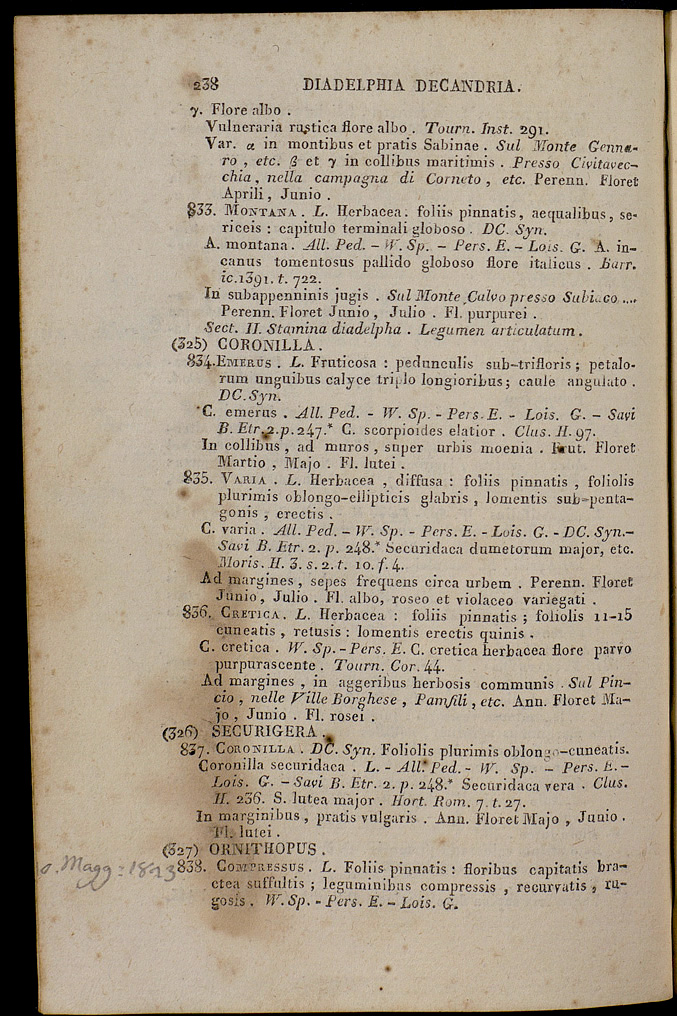 238 DIADELPHIA DECANDRIA.
γ. Flore albo .
Vulneraria rustica flore albo . Tourn. Inst. 291.
Var. α in montibus et pratis Sabinae . Sul Monte Genna-
ro , etc. β et γ in collibus maritimis . Presso Civitavec-
chia , nella campagna di Corneto , etc. Perenn. Floret
Aprili , Junio .
833. MONTANA . L. Herbacea: foliis pinnatis , aequalibus, se-
riceis : capitulo terminali globoso . DC. Syn.
A. montana . All. Ped. - W. Sp. - Pers. E. - Lois. G. A. in-
canus tomentosus pallido globoso flore italicus . Barr.
ic. 1391. t. 722.
In subappenninis jugis . Sul Monte Calvo presso Subiaco ....
Perenn. Floret Junio , Julio . Fl. purpurei .
Sect. II. Stamina diadelpha . Legumen articulatum .
(325) CORONILLA .
834. EMERUS . L. Fruticosa : pedunculis sub-trifloris ; petalo-
rum unguibus calyce triplo longioribus ; caule angulato .
DC. Syn.
C. emerus . All. Ped. - W. Sp. - Pers. E. - Lois. G. - Savi
B. Etr. 2. p. 247.* C. scorpioides elatior . Clus. H. 97.
In collibus , ad muros , super urbis moenia . Frut. Floret
Martio , Majo . Fl. lutei .
835. VARIA . L. Herbacea , diffusa : foliis pinnatis , foliolis
plurimis oblongo-ellipticis glabris , lomentis sub-penta-
gonis , erectis .
C. varia . All. Ped. - W. Sp. - Pers. E. - Lois. G. - DC. Syn.-
Savi B. Etr. 2. p. 248.* Securidaca dumetorum major, etc.
Moris. H. 3. s. 2. t. 10. f. 4.
Ad margines , sepes frequens circa urbem . Perenn. Floret
Junio , Julio . Fl. albo, roseo et violaceo variegati .
836. CRETICA . L. Herbacea : foliis pinnatis ; foliolis 11-15
cuneatis , retusis : lomentis erectis quinis .
C. cretica . W. Sp. - Pers. E. C. cretica herbacea flore parvo
purpurascente . Tourn. Cor. 44.
Ad margines , in aggeribus herbosis communis . Sul Pin-
cio , nelle Ville Borghese , Pamfili , etc. Ann. Floret Ma-
jo , Junio . Fl. rosei .
(326) SECURIGERA .
837. CORONILLA . DC. Syn. Foliolis plurimis oblongo-cuneatis.
Coronilla securidaca . L. - All. Ped. - W. Sp. - Pers. E. -
Lois. G. - Savi B. Etr. 2. p. 248.* Securidaca vera . Clus.
H. 236. S. lutea major . Hort. Rom. 7. t. 27.
In marginibus , pratis vulgaris . Ann. Floret Majo , Junio .
Fl. lutei .
(327) ORNITHOPUS .
838. COMPRESSUS . L. Foliis pinnatis : floribus capitatis bra-
ctea suffultis ; leguminibus compressis , recurvatis , ru-
gosis . W. Sp. - Pers. E. - Lois. G.
Magg: 1823